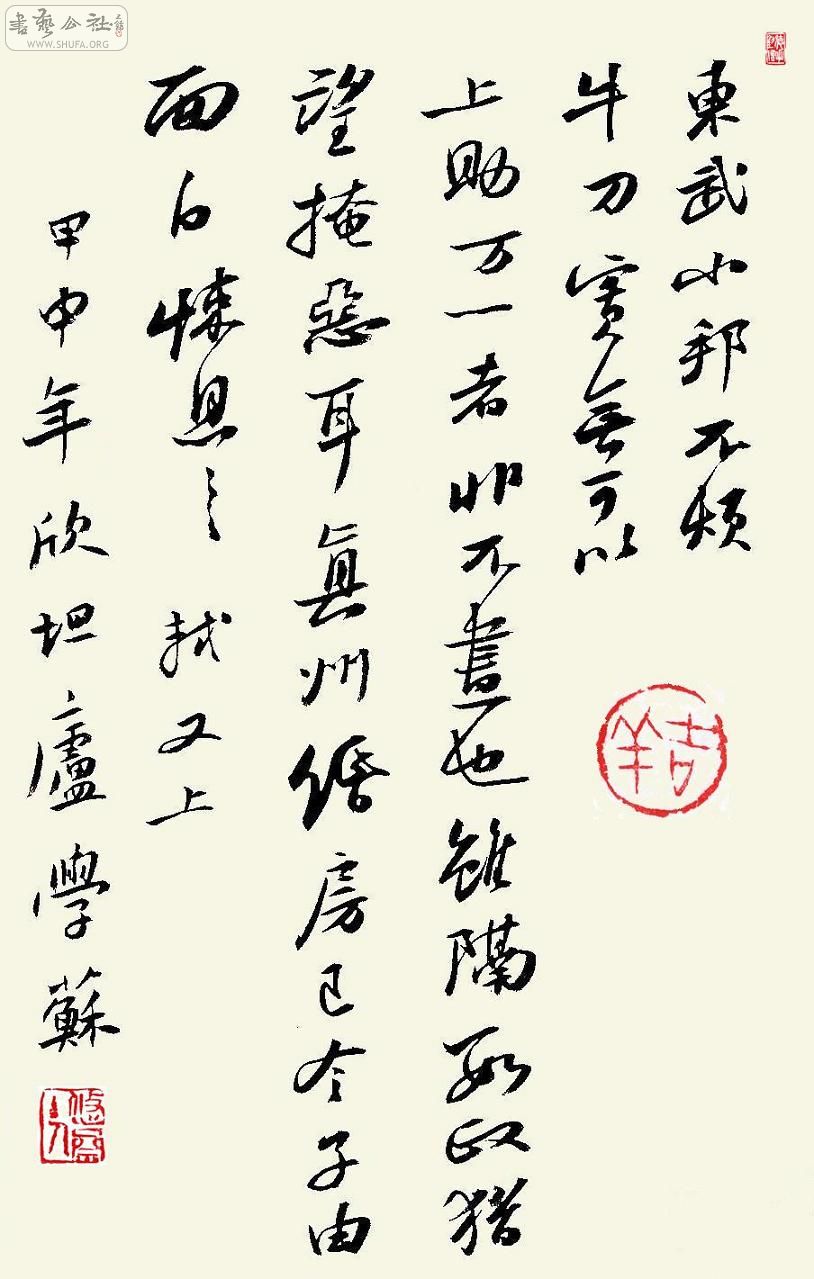 書藝公社
WWW.SHUFA.ORG
東武小邦不煩
牛刀實無可以
上助万一者非不盡也雖隔數政猶
望掩惡耳真州緡房已令子由
面白悚息々 軾又上
甲申年欣坦廬學蘇
吉羊